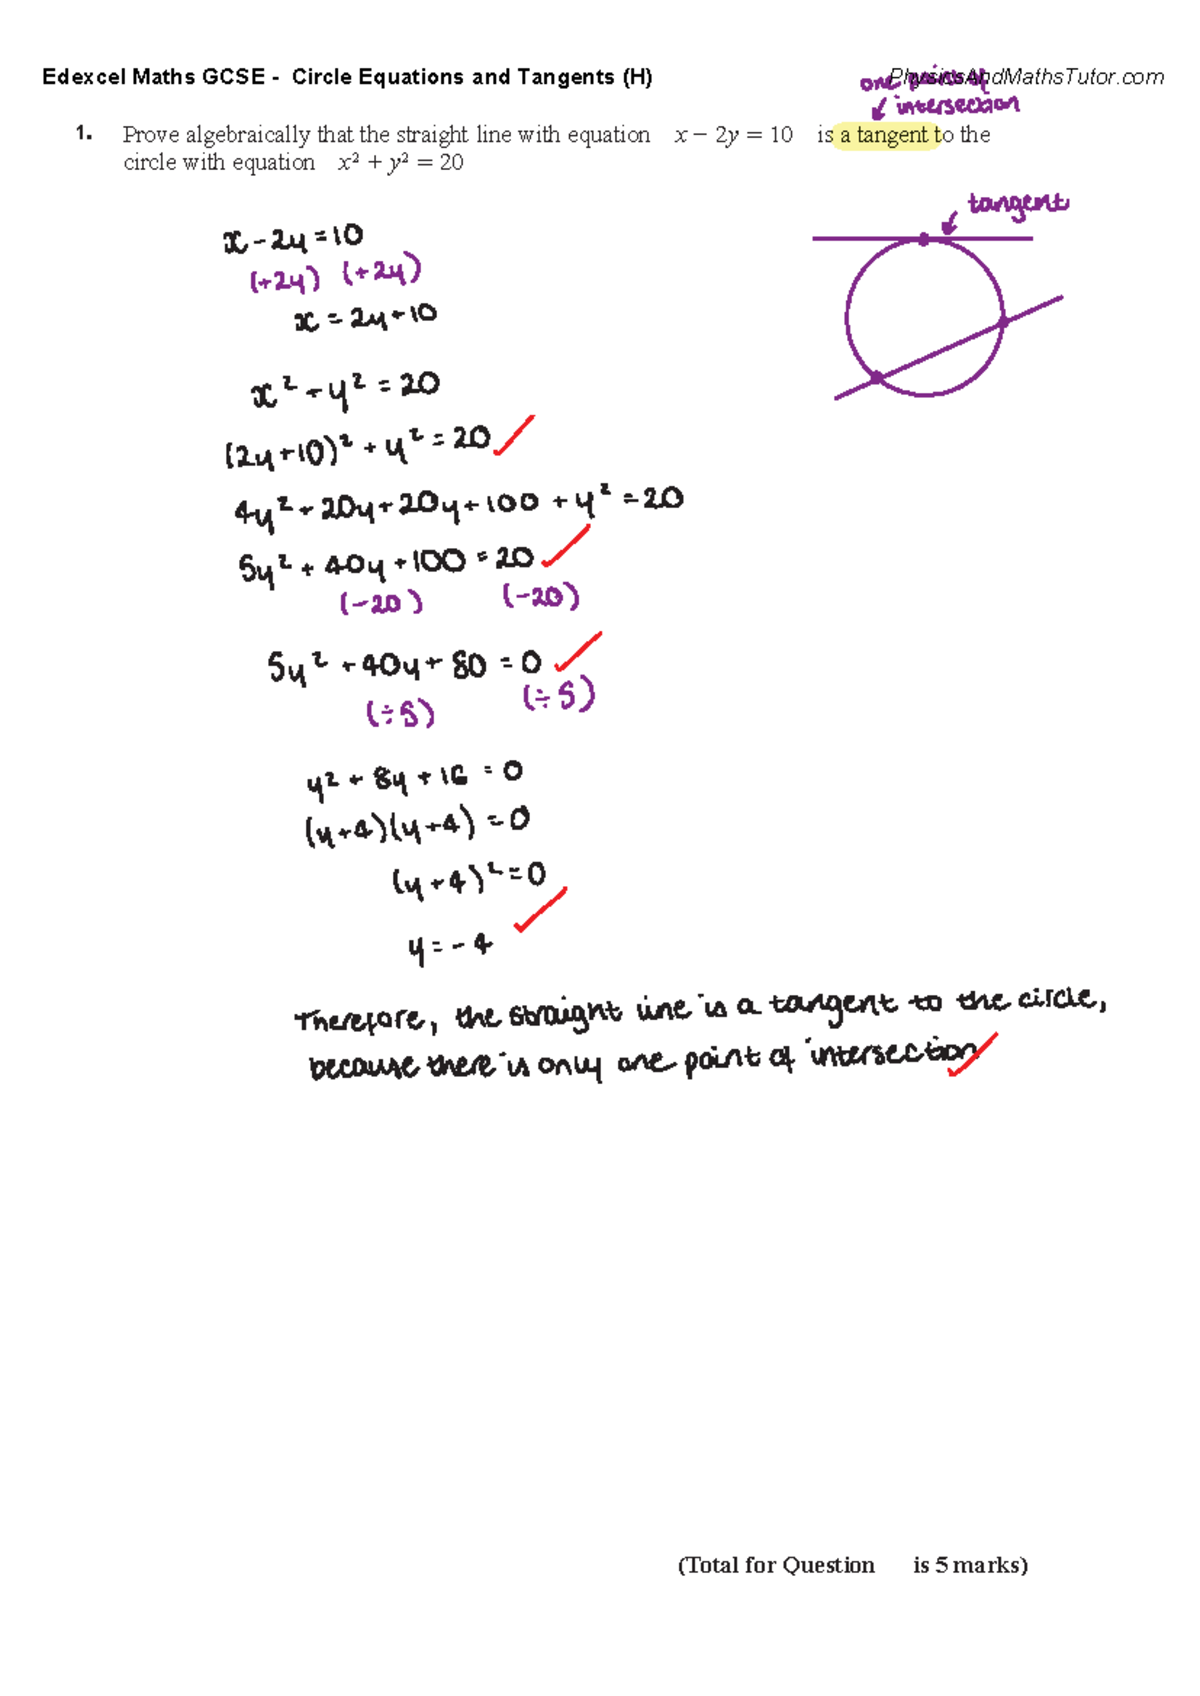 Edexcel Maths GCSE - Circle Equations and Tangents (H)
PhysicsAndMathsTutor.com
one point of
intersection
1. Prove algebraically that the straight line with equation x − 2y = 10 is a tangent to the
circle with equation x² + y² = 20
tangent
x - 2y = 10
(+2y) (+2y)
x = 2y + 10
x² + y² = 20
(2y + 10)² + y² = 20
4y² + 20y + 20y + 100 + y² = 20
5y² + 40y + 100 = 20
(-20) (-20)
5y² + 40y + 80 = 0
(÷5) (÷5)
y² + 8y + 16 = 0
(y+4)(y+4) = 0
(y+4)² = 0
y = -4
Therefore, the straight line is a tangent to the circle,
because there is only one point of intersection
(Total for Question is 5 marks)